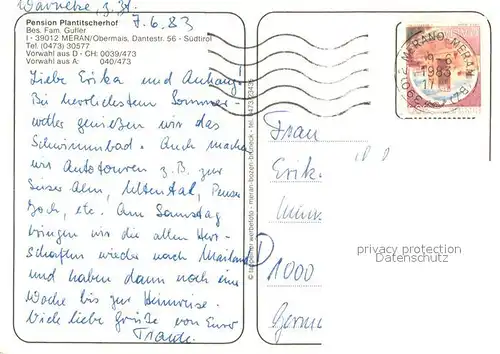 Warneke, z. Zt.
7.6.83
Pension Plantitscherhof
Bes. Fam. Gufler
I - 39012 MERAN/Obermais, Dantestr. 56 - Südtirol
Tel. (0473) 30577
Vorwahl aus D - CH: 0039/473
Vorwahl aus A: 040/473
Liebe Erika und Anhang!
Bei herrlichstem Sommer-
wetter genießen wir das
Schwimmbad. Auch machen
wir Autotouren z.B. zur
Seiser Alm, Ultental, Penser
Joch, etc. Am Samstag
bringen wir die alten Herr-
schaften wieder nach Mailand
und haben dann noch eine
Woche bis zur Heimreise.
Viele liebe Grüße von Eurer
Traute.
© tappeiner werbefoto - meran-bozen-bruneck - tel. 0473
39012 MERANO MERAN (BZ)
1983
17
Frau
Erik
D
1000
Germ
privacy protection
Datenschutz